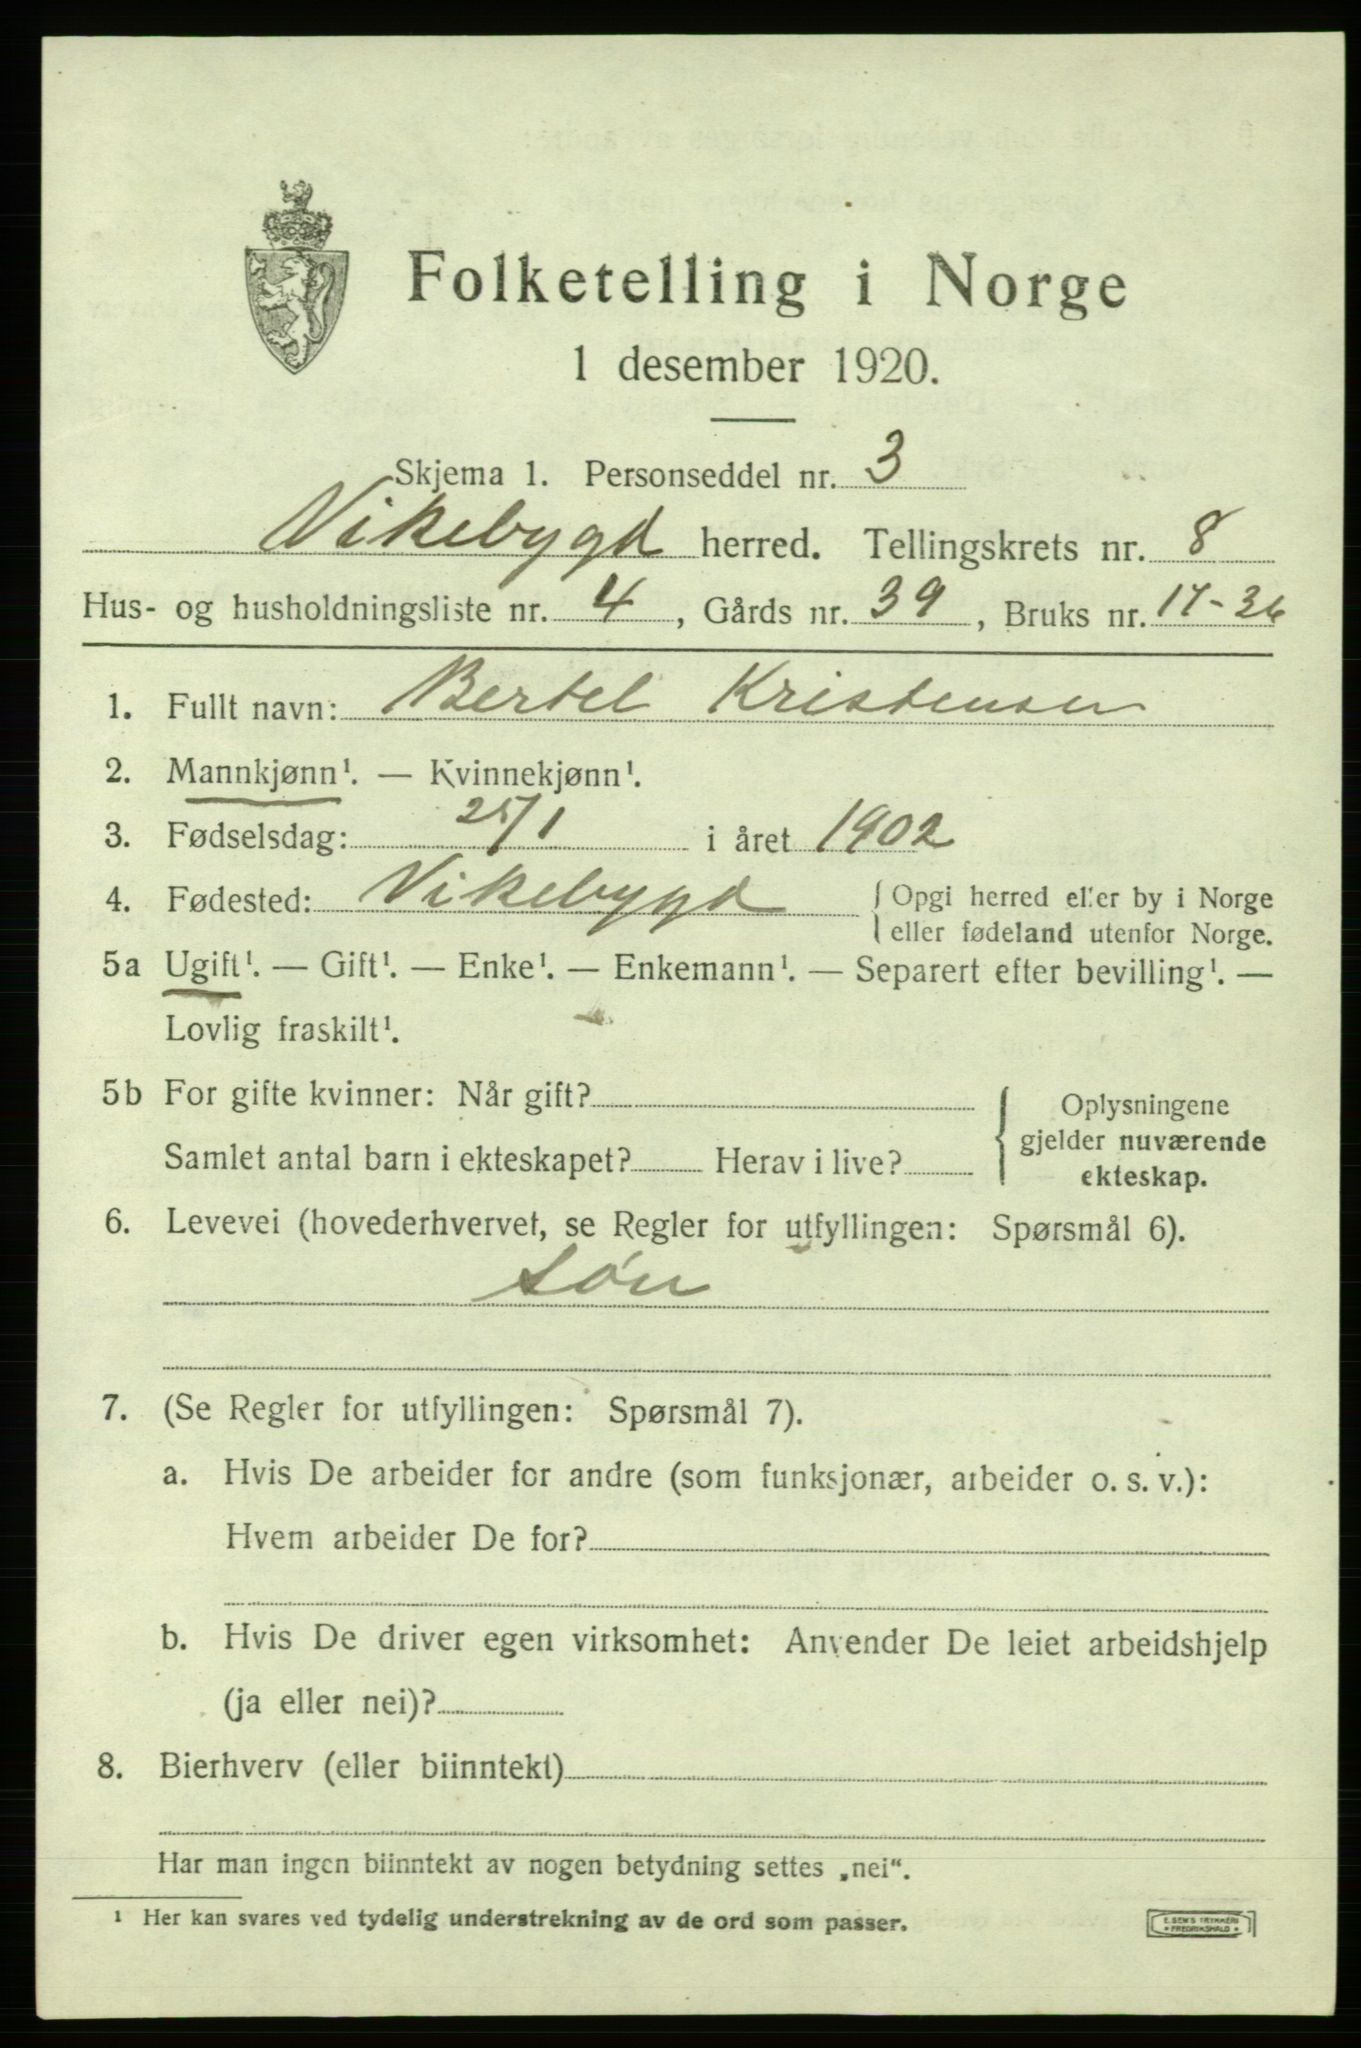 Folketelling i Norge
1 desember 1920.
Skjema 1. Personseddel nr. 3
Vikebygd herred. Tellingskrets nr. 8
Hus- og husholdningsliste nr. 4, Gårds nr. 39, Bruks nr. 17-36
1. Fullt navn: Bertel Kristensen
2. Mannkjønn¹. — Kvinnekjønn¹.
3. Fødselsdag: 25/1 i året 1902
4. Fødested: Vikebygd { Opgi herred eller by i Norge
eller fødeland utenfor Norge.
5a Ugift¹. — Gift¹. — Enke¹. — Enkemann¹. — Separert efter bevilling¹. —
Lovlig fraskilt¹.
5b For gifte kvinner: Når gift?
Samlet antal barn i ekteskapet? Herav i live?
Oplysningene
gjelder nuværende
ekteskap.
6. Levevei (hovederhvervet, se Regler for utfyllingen: Spørsmål 6).
Søn
7. (Se Regler for utfyllingen: Spørsmål 7).
a. Hvis De arbeider for andre (som funksjonær, arbeider o. s. v.):
Hvem arbeider De for?
b. Hvis De driver egen virksomhet: Anvender De leiet arbeidshjelp
(ja eller nei)?
8. Bierhverv (eller biinntekt)
Har man ingen biinntekt av nogen betydning settes „nei“.
¹ Her kan svares ved tydelig understrekning av de ord som passer.
E. SEM'S TRYKKERI
• FREDRIKSHALD •